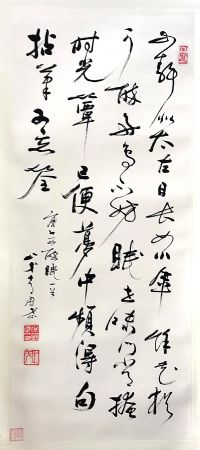 山静似太古日长如小年馀花犹
可醉好鸟不妨眠世味门常掩
时光簟已便夢中頻得句
拈筆又忘筌
唐子西醉眠一首